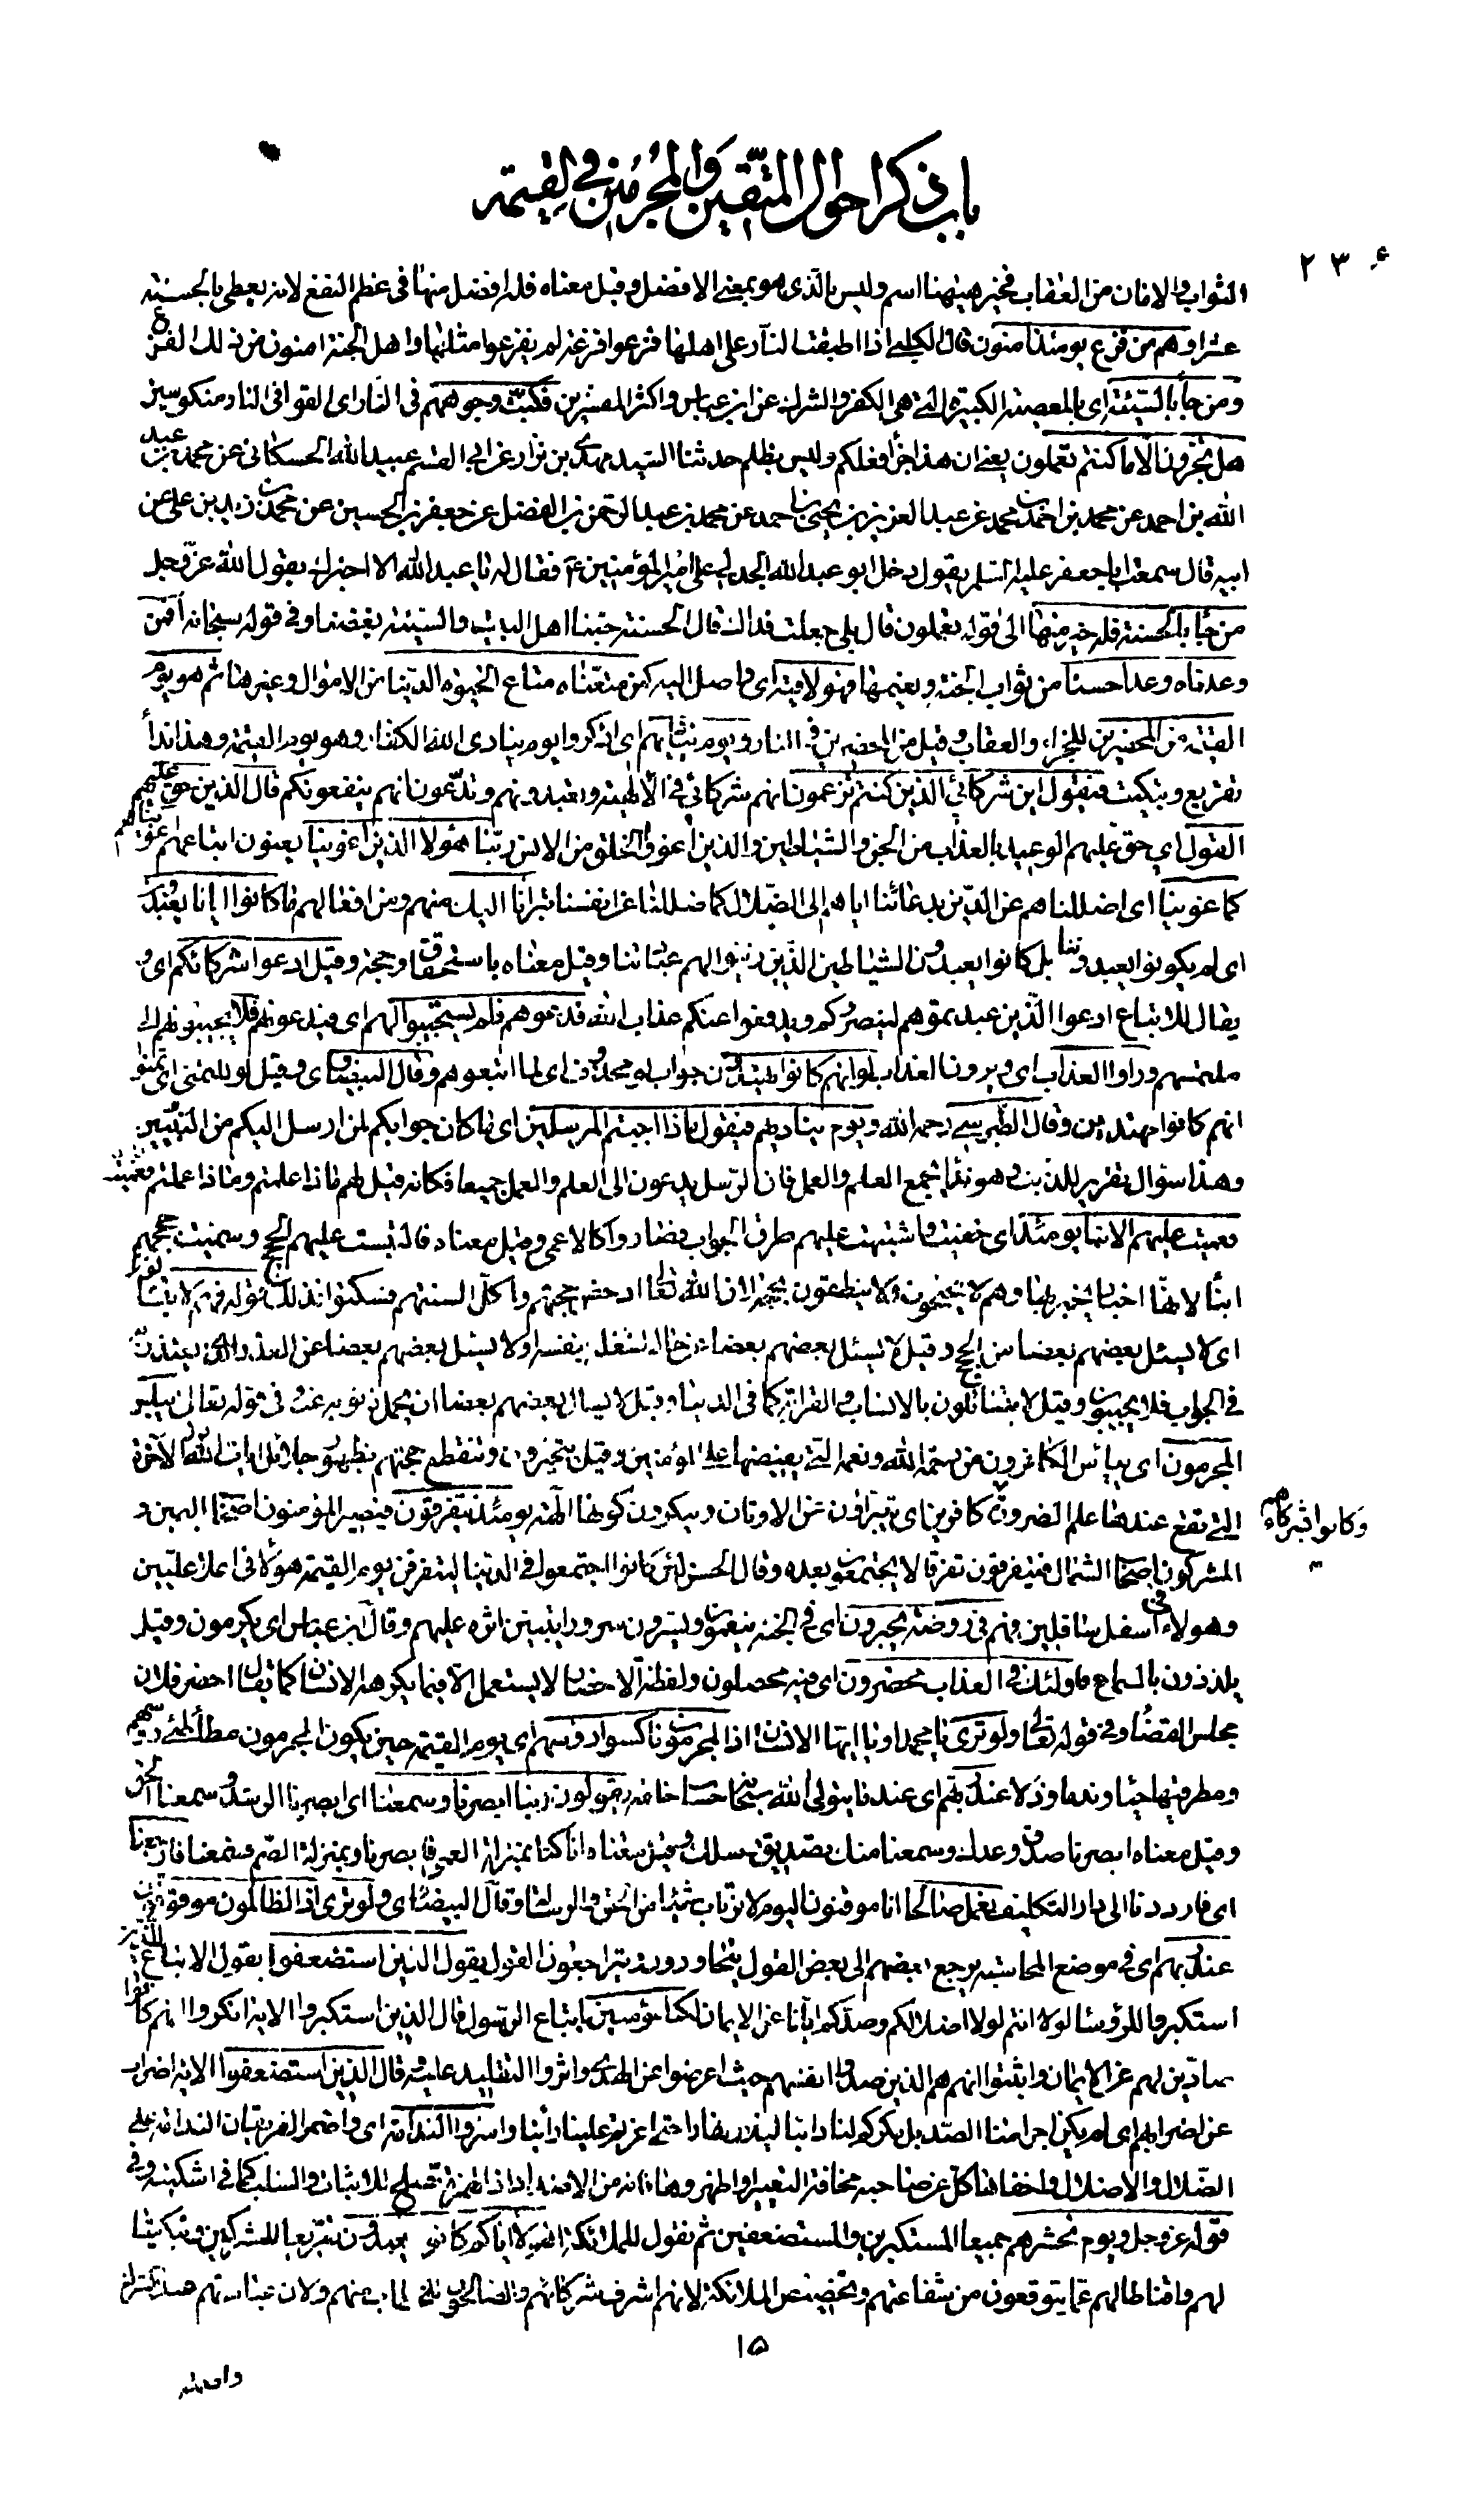 باب ذكر احوال المتّقين والمجرمين في القيمة
٢٣٠
الثواب والامان من العقاب فخير ههنا اسم وليس بالّذي هو بمعنى الافضل وقيل معناه فله افضل منها في عظم النفع لانه يعطى بالحسنة
عشرا وهم من فزع يومئذ آمنون قال الكلبي اذا اطبقت النار على اهلها فزعوا فزعة لم يفزعوا مثلها واهل الجنة امنون من ذلك الفزع
ومن جاء بالسّيّئة اي بالمعصية الكبيرة التي هي الكفر والشرك عن ابن عباس واكثر المفسرين فكبّت وجوههم في النار اي القوا في النار منكوسين
هل تجزون الّا ما كنتم تعملون يعني ان هذا جزاء فعلكم وليس بظلم حدثنا السّيد مهدي بن نزار عن ابي القسم عبيد الله الحسكاني عن محمد بن عبد
الله بن احمد عن محمد بن احمد بن محمد عن عبد العزيز بن يحيى بن احمد عن محمد بن عبد الرّحمن بن الفضل عن جعفر بن الحسين عن محمد بن زيد بن علي عن
ابيه قال سمعت ابا جعفر عليه السّلم يقول دخل ابو عبد الله الجدلي على امير المؤمنين ع فقال له يا عبد الله الا اخبرك بقول الله عزّ وجل
من جاء بالحسنة فله خير منها الى قوله تعملون قال بلى جعلت فداك قال الحسنة حبّنا اهل البيت والسّيّئة بغضنا وفي قوله سبحانه أفمن
وعدناه وعدا حسنا من ثواب الجنة ونعيمها فهو لاقيه اي واصل اليه كمن متّعناه متاع الحيوة الدّنيا من الاموال وغيرها ثم هو يوم
القيمة من المحضرين للجزاء والعقاب وقيل من المحضرين في النار ويوم يناديهم اي اذكروا يوم ينادي الله الكفار وهو يوم القيمة وهذا نداء
تقريع وتبكيت فيقول اين شركائي الّذين كنتم تزعمون انهم شركائي في الالهية وتعبدونهم وتدّعون انهم ينفعونكم قال الذين حق عليهم
القول اي حق عليهم الوعيد بالعذاب من الجن والشياطين والذين اغووا الخلق من الانس ربّنا هؤلاء الذين اغوينا يعنون اتباعهم اغويناهم
كما غوينا اي اضللناهم عن الدّين بدعائنا اياهم الى الضّلال كما ضللنا نحن بانفسنا تبرّأنا اليك منهم ومن افعالهم ما كانوا ايانا يعبدون
اي لم يكونوا يعبدوننا بل كانوا يعبدون الشياطين الّذين زيّنوا لهم عبادتنا وقيل معناه باستحقاق وحجة وقيل ادعوا شركائكم اي و
يقال للاتباع ادعوا الّذين عبدتموهم لينصروكم ويدفعوا عنكم عذاب الله فدعوهم فلم يستجيبوا لهم اي فيدعونهم فلا يجيبونهم الى
ملتمسهم وراوا العذاب اي ويرون العذاب لو انهم كانوا يهتدون جواب لو محذوف اي لما اتبعوهم وقال البيضاوي وقيل لو للتمني اي تمنوا
انهم كانوا مهتدين وقال الطبرسي رحمه الله ويوم يناديهم فيقول ماذا اجبتم المرسلين اي ما كان جوابكم لمن ارسل اليكم من النبيّين
وهذا سؤال تقرير للذنب وهو نداء يجمع العلم والعمل فان الرّسل يدعون الى العلم والعمل جميعا فكانه قيل لهم ماذا علمتم وماذا عملتم
فعميت عليهم الانباء يومئذ اي خفيت واشتبهت عليهم طرق الجواب فصاروا كالاعمى وقيل معناه فالتبست عليهم الحجج وسميت حججهم
انباء لانها اخبار يخبر بها وهم لا يحتجون ولا ينطقون بحجة لان الله تعالى ادحض حجتهم واكلّ السنتهم فسكتوا فذلك قوله فهم لا يتساءلون
اي لا يسئل بعضهم بعضا من الحجج وقيل لا يسئل بعضهم بعضا عن حاله لشغله بنفسه ولا يسئل بعضهم بعضا عن العذر الّذي يعتذر به
في الجواب فلا يجيبون وقيل لا يتسائلون بالانساب والقرابة كما في الدنيا وقيل لا يسال بعضهم بعضا ان يحمل ذنوبه عنه في قوله تعالى يبلس
المجرمون اي يياس الكافرون من رحمة الله ونعمه التي يفيضها على المؤمنين وقيل يتحيرون وتنقطع حجتهم بظهور جلائل ايات الله الآخرة
وكانوا بشركائهم
التي تقع عندها علم الضرورة كافرين اي يتبرّاون من الاوثان وينكرون كونها الهة يومئذ يتفرقون فيصير المؤمنون اصحاب اليمين و
المشركون اصحاب الشمال فيتفرقون تفرقا لا يجتمعون بعده وقال الحسن لئن كانوا اجتمعوا في الدّنيا ليتفرقن يوم القيمة هؤلاء في اعلا علّيّين
وهؤلاء في اسفل سافلين فهم في روضة يحبرون اي في الجنة ينعمون ويسرون سرورا يتبين اثره عليهم وقال ابن عباس اي يكرمون وقيل
يلذذون بالسماع فاولئك في العذاب محضرون اي فيه محصلون ولفظة الاحضار لا يستعمل الا فيما يكرهه الانسان كما يقال احضر فلان
مجلس القضاء وفي قوله تعالى ولو ترى يا محمد او يا ايها الانسان اذ المجرمون ناكسوا رؤسهم اي يوم القيمة حين يكون المجرمون مطاطئي رؤسهم
ومطرقيها حياء وندما وذلا عند ربّهم اي عند ما يتولى الله سبحانه حساب خلقه يقولون ربنا ابصرنا وسمعنا اي ابصرنا الرشد وسمعنا الحق
وقيل معناه ابصرنا صدق وعدك وسمعنا منك تصديق رسلك وقيل معناه انا كنا بمنزلة العمي فابصرنا وبمنزلة الصّم فسمعنا فارجعنا
اي فارددنا الى دار التكليف نعمل صالحا انا موقنون اليوم لا نرتاب شيئا من الحق والرسالة وقال البيضاوي ولو ترى اذ الظالمون موقوفون
عند ربهم اي في موضع المحاسبة يرجع بعضهم الى بعض القول يتحاورون ويتراجعون القول يقول الذين استضعفوا يقول الاتباع للذين
استكبروا للرؤسا لولا انتم لولا اضلالكم وصدّكم ايّانا عن الايمان لكنا مؤمنين باتباع الرسول قال الذين استكبروا الاية انكروا انهم كانوا
صادّين لهم عن الايمان واثبتوا انهم هم الذين صدوا انفسهم حيث اعرضوا عن الهدى واثروا التقليد عليه وقال الذين استضعفوا الاية اضراب
عن اضرابهم اي لم يكن اجرامنا الصّد بل مكركم لنا دائبا ليلا ونهارا حتى اغرتم علينا رأينا واسرّوا الندامة اي واضمر الفريقان الندامة على
الضّلال والاضلال واخفاها كل عن صاحبه مخافة التعيير او اظهروها فانه من الاضداد اذ الهمزة تصلح للاثبات والسلب كما في اشكيته وفي
قوله عزّ وجل ويوم نحشرهم جميعا المستكبرين والمستضعفين ثم نقول للملائكة اهؤلاء اياكم كانوا يعبدون تقريعا للمشركين وتبكيتا
لهم واقناطا لهم عمّا يتوقعون من شفاعتهم وتخصيص الملائكة لانهم اشرف شركائهم والصالحون للخطاب منهم ولان عبادتهم مبدء الشرك
١٥
واصله